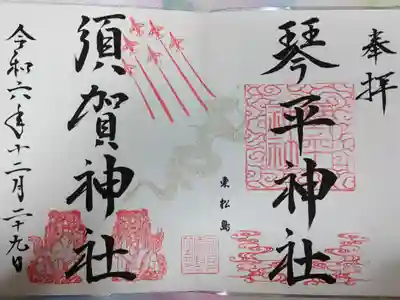 奉拝
琴平神社
東松島
須賀神社
令和六年十二月二十九日